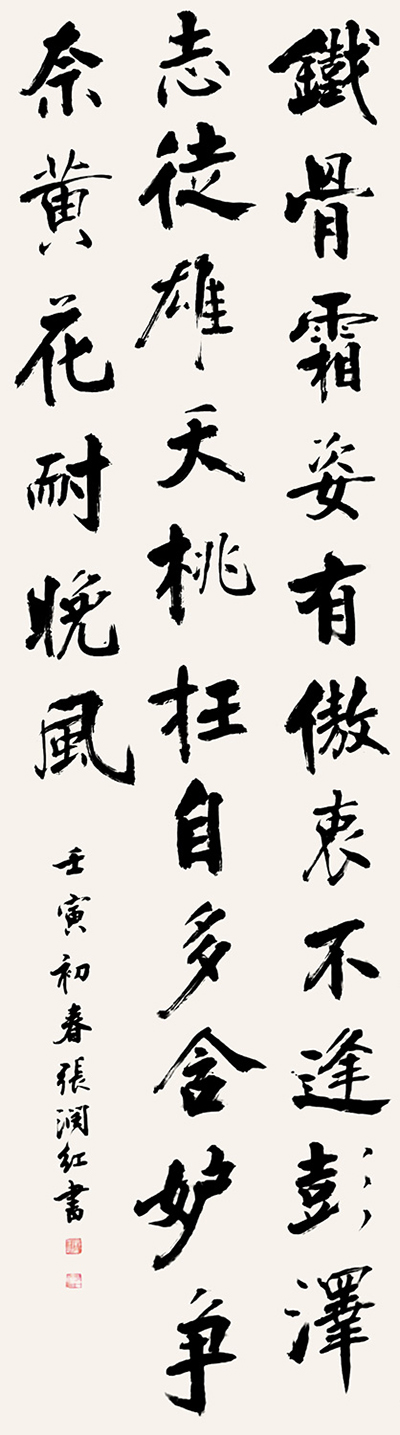 鐵骨霜姿有傲衷不逢彭澤
志徒雄夭桃枉自多含妒争
奈黄花耐晚風
壬寅初春張潤紅書